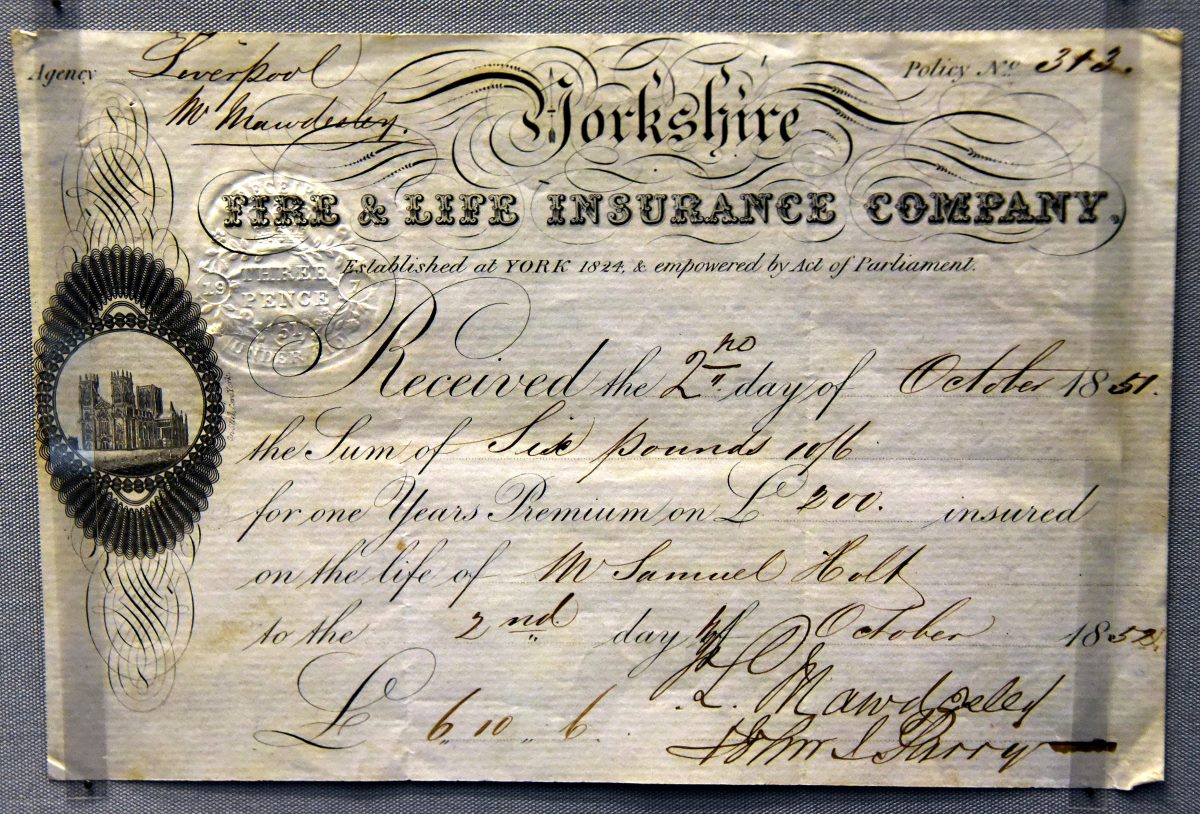 Agency Liverpool Policy Nº 343.
Mr Mawdesley.
Yorkshire
FIRE & LIFE INSURANCE COMPANY,
Established at YORK 1824, & empowered by Act of Parliament.
RECEIPT
THREE
19 7
PENCE
51
UNDER
Received the 2nd day of October 1851.
the Sum of Six pounds 10/6
for one Years Premium on £ 200. insured
on the life of Mr Samuel Holt
to the 2nd day of October 1852.
L. Mawdesley
£ 6 " 10 " 6.
John Parry